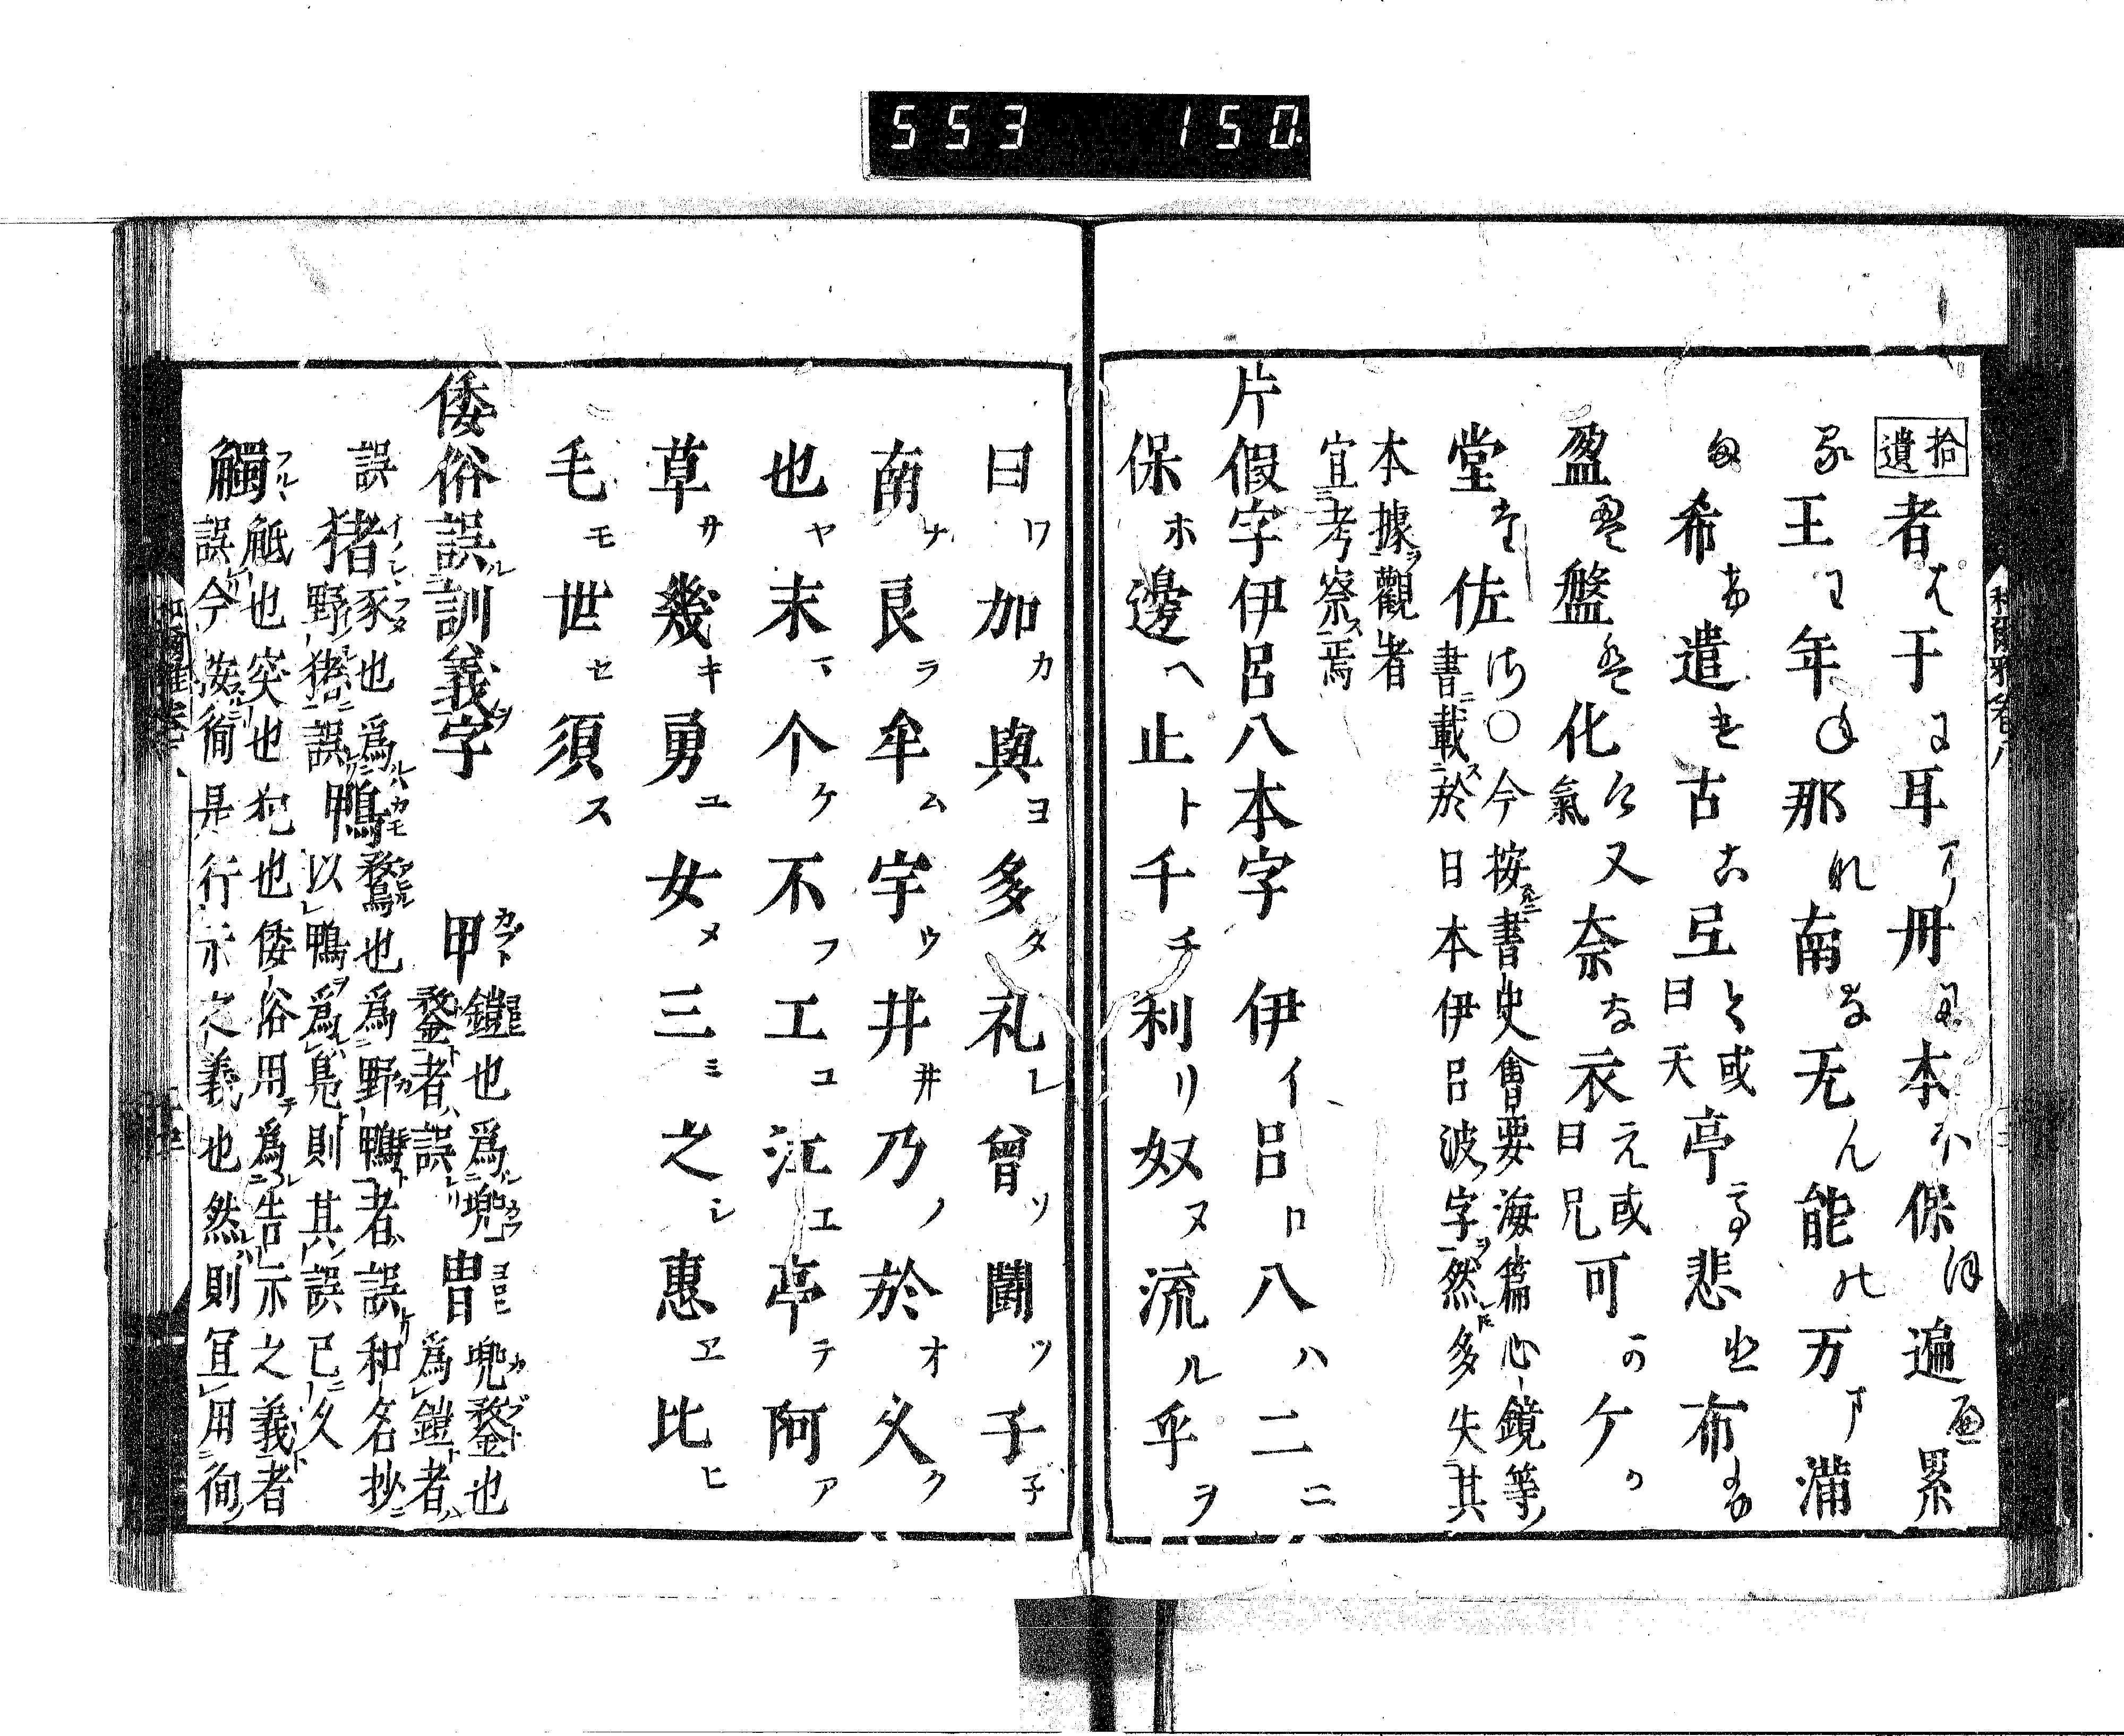 553 150
和爾雅卷八
拾遺 者は 于に 耳に 丹に 本ホ 保ほ 遍 累
王わ 年ね 那な 南な 无ん 能の 万ま 滿
希 遣け 古こ 弖て 或曰天 亭て 悲ひ 布
盈 盤 化け 氣 又 奈な 衣え 或曰兄 可か ケ
堂た 佐さ 〇今按書史會要海篇心鏡等
書載於日本伊呂波字然多失其
本據觀者
宜考察焉
片假字伊呂八本字 伊イ 呂ロ 八ハ 二ニ
保ホ 邊ヘ 止ト 千チ 利リ 奴ヌ 流ル 乎ヲ
曰ワ 加カ 與ヨ 多タ 礼レ 曾ソ 鬪ツ 子子
南ナ 良ラ 牟ム 宇ウ 井井 乃ノ 於オ 久ク
也ヤ 末マ 个ケ 不フ 工コ 江エ 亭テ 阿ア
草サ 幾キ 勇ユ 女メ 三ミ 之シ 惠ヱ 比ヒ
毛モ 世セ 須ス
倭俗誤訓義字 甲カブト 鎧也爲兜
鍪者誤 冑ヨロヒ 兜鍪也
爲鎧者
誤 猪 豕也爲
野猪誤 鴨 鶩也爲野鴨者誤和名抄
甲以鴨爲鳧則其誤已久
觸フルヽ 觝也突也犯也倭俗用爲告示之義者
誤今按徇是行示之義也然則宜用徇